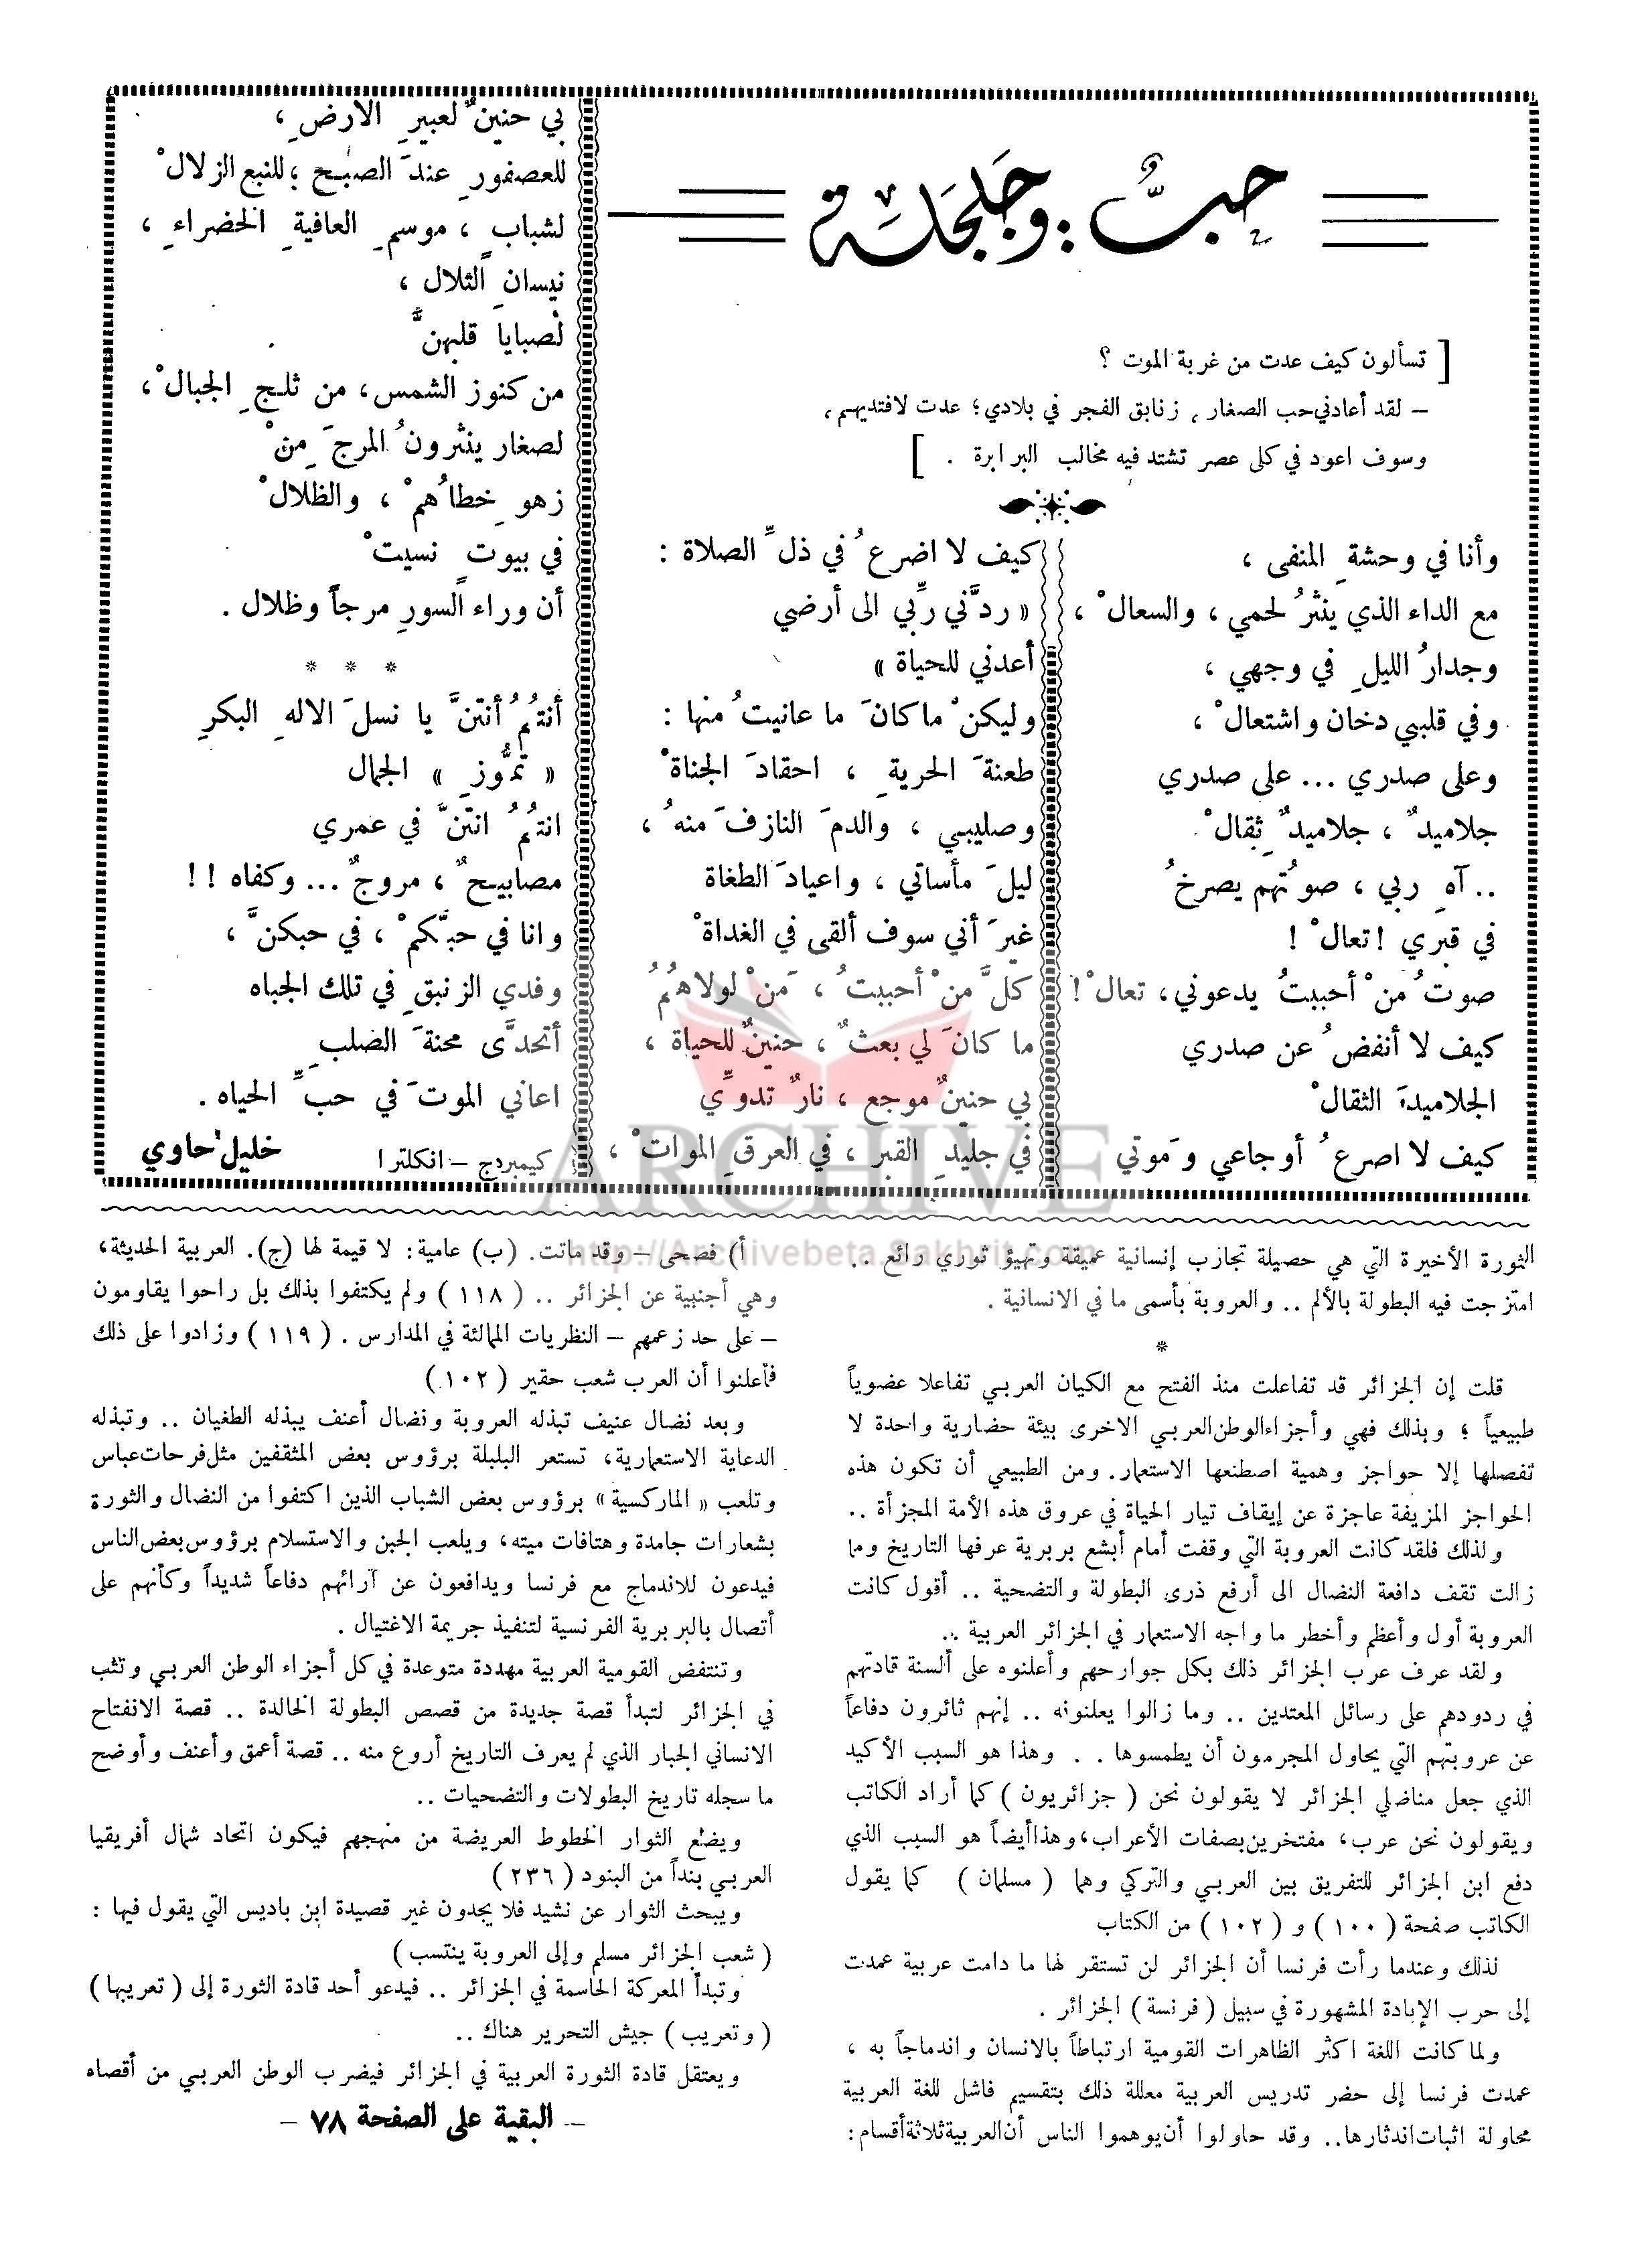 حبٌّ . وجلجلة
[ تسألون كيف عدت من غربة الموت ؟
– لقد أعادني حب الصغار ، زنابق الفجر في بلادي ؛ عدت لافتديهم ،
وسوف اعود في كلى عصر تشتد فيه مخالب البرابرة . ]
وأنا في وحشةِ المنفى ،
مع الداء الذي ينثرُ لحمي ، والسعالْ ،
وجدارُ الليلِ في وجهي ،
وفي قلبي دخان واشتعالْ ،
وعلى صدري ... على صدري
جلاميدٌ ، جلاميدٌ ثِقالْ .
.. آهِ ربي ، صوتُهم يصرخُ
في قبري ! تعالْ !
صوتُ مَنْ أحببتُ يدعوني، تعالْ !
كيف لا أنفضُ عن صدري
الجلاميدَ الثقالْ
كيف لا اصرعُ أوجاعي ومَوتي
كيف لا اضرعُ في ذلِّ الصلاة :
« ردَّني ربِّي الى أرضي
أعدني للحياة »
وليكنْ ماكانَ ما عانيتُ منها :
طعنةَ الحريةِ ، احقادَ الجناةْ
وصليبي ، والدمَ النازفَ منهُ ،
ليلَ مأساتي ، واعيادَ الطغاة
غيرَ أني سوف ألقى في الغداةْ
كلَّ منْ أحببتُ ، مَنْ لولاهُمُ
ما كانَ لي بعثٌ ، حنينٌ للحياة ،
بي حنينٌ موجع ، نارٌ تدوِّي
في جليدِ القبرِ ، في العرقِ المواتْ ،
بي حنينٌ لعبيرِ الارضِ ،
للعصفورِ عندَ الصبحِ ؛ للنبع الزلالْ
لشبابٍ ، موسمِ العافيةِ الخضراءِ ،
نيسانِ التلال ،
لصبايا قلبهنَّ
من كنوز الشمس، من ثلجِ الجبالْ ،
لصغار ينثرونُ المرجَ مِنْ
زهوِ خطاُهمْ ، والظلالْ
في بيوت نسيتْ
أن وراء السورِ مرجاً وظلال .
* * *
أنتُمُ أنتنَّ يا نسلَ الالهِ البكرِ
« تمُّوزِ » الجمال
انتُمُ انتنَّ في عمري
مصابيحٌ ، مروجٌ ... وكفاه !!
وانا في حبّكمْ ، في حبكنَّ ،
وفدي الزنبقِ في تلك الجباه
أتحدَّى محنةَ الصلبِ
اعاني الموتَ في حبِّ الحياه .
كيمبردج – انكلترا خليل حاوي
الثورة الأخيرة التي هي حصيلة تجارب إنسانية عميقة وتهيؤ ثوري رائع ..
امتزجت فيه البطولة بالألم .. والعروبة بأسمى ما في الانسانية .
*
قلت إن الجزائر قد تفاعلت منذ الفتح مع الكيان العربي تفاعلا عضوياً
طبيعياً ؛ وبذلك فهي وأجزاءالوطن‌العربي الاخرى بيئة حضارية واحدة لا
تفصلها إلا حواجز وهمية اصطنعها الاستعمار. ومن الطبيعي أن تكون هذه
الحواجز المزيفة عاجزة عن إيقاف تيار الحياة في عروق هذه الأمة المجزأة ..
ولذلك فلقد كانت العروبة التي وقفت أمام أبشع بربرية عرفها التاريخ وما
زالت تقف دافعة النضال الى أرفع ذرى البطولة والتضحية .. أقول كانت
العروبة أول وأعظم وأخطر ما واجه الاستعمار في الجزائر العربية ..
ولقد عرف عرب الجزائر ذلك بكل جوارحهم وأعلنوه على ألسنة قادتهم
في ردودهم على رسائل المعتدين .. وما زالوا يعلنونه .. إنهم ثائرون دفاعاً
عن عروبتهم التي يحاول المجرمون أن يطمسوها .. وهذا هو السبب الأكيد
الذي جعل مناضلي الجزائر لا يقولون نحن ( جزائريون ) كما أراد الكاتب
ويقولون نحن عرب، مفتخرين‌بصفات الأعراب، وهذاأيضاً هو السبب الذي
دفع ابن الجزائر للتفريق بين العربي والتركي وهما ( مسلمان ) كما يقول
الكاتب صفحة ( ١٠٠ ) و ( ١٠٢ ) من الكتاب
لذلك وعندما رأت فرنسا أن الجزائر لن تستقر لها ما دامت عربية عمدت
إلى حرب الإبادة المشهورة في سبيل ( فرنسة ) الجزائر .
ولما كانت اللغة اكثر الظاهرات القومية ارتباطاً بالانسان واندماجاً به ،
عمدت فرنسا إلى حضر تدريس العربية معللة ذلك بتقسيم فاشل للغة العربية
محاولة اثبات‌اندثارها.. وقد حاولوا أن‌يوهموا الناس أن‌العربية‌ثلاثةأقسام:
أ) فصحى – وقد ماتت. (ب) عامية: لا قيمة لها (ج). العربية الحديثة،
وهي أجنبية عن الجزائر .. ( ١١٨ ) ولم يكتفوا بذلك بل راحوا يقاومون
– على حد زعمهم – النظريات المالئة في المدارس . ( ١١٩ ) وزادوا على ذلك
فأعلنوا أن العرب شعب حقير ( ١٠٢ )
وبعد نضال عنيف تبذله العروبة ونضال أعنف يبذله الطغيان .. وتبذله
الدعاية الاستعمارية، تستعر البلبلة برؤوس بعض المثقفين مثل‌فرحات‌عباس
وتلعب « الماركسية » برؤوس بعض الشباب الذين اكتفوا من النضال والثورة
بشعارات جامدة وهتافات ميته، ويلعب الجبن والاستسلام برؤوس‌بعض‌الناس
فيدعون للاندماج مع فرنسا ويدافعون عن آرائهم دفاعاً شديداً وكأنهم على
أتصال بالبربرية الفرنسية لتنفيذ جريمة الاغتيال .
وتنتفض القومية العربية مهددة متوعدة في كل أجزاء الوطن العربي وتثب
في الجزائر لتبدأ قصة جديدة من قصص البطولة الخالدة .. قصة الانفتاح
الانساني الجبار الذي لم يعرف التاريخ أروع منه .. قصة أعمق وأعنف وأوضح
ما سجله تاريخ البطولات والتضحيات ..
ويضع الثوار الخطوط العريضة من منهجهم فيكون اتحاد شمال أفريقيا
العربي بنداً من البنود ( ٢٣٦ )
ويبحث الثوار عن نشيد فلا يجدون غير قصيدة ابن باديس التي يقول فيها :
( شعب الجزائر مسلم وإلى العروبة ينتسب )
وتبدأ المعركة الحاسمة في الجزائر .. فيدعو أحد قادة الثورة إلى ( تعريبها )
( وتعريب ) جيش التحرير هناك ..
ويعتقل قادة الثورة العربية في الجزائر فيضرب الوطن العربي من أقصاه
– البقية على الصفحة ٧٨ –
ARCHIVE
http://Archivebeta.Sakhrit.com